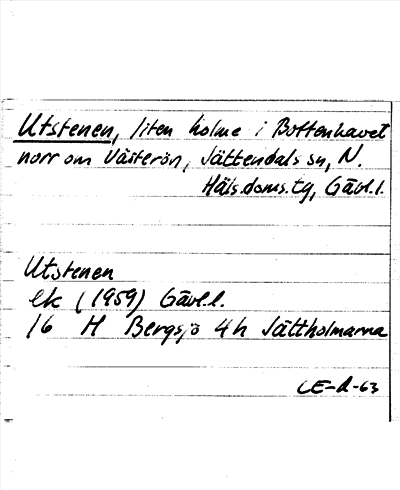 Utstenen, liten holme i Bottenhavet
norr om Västerön, Jättendals sn, N.
Häls. doms. tg, Gävl.l.
Utstenen
ek (1959) Gävl.l.
16 H Bergsjö 4h Jättholmarna
LE-d-63